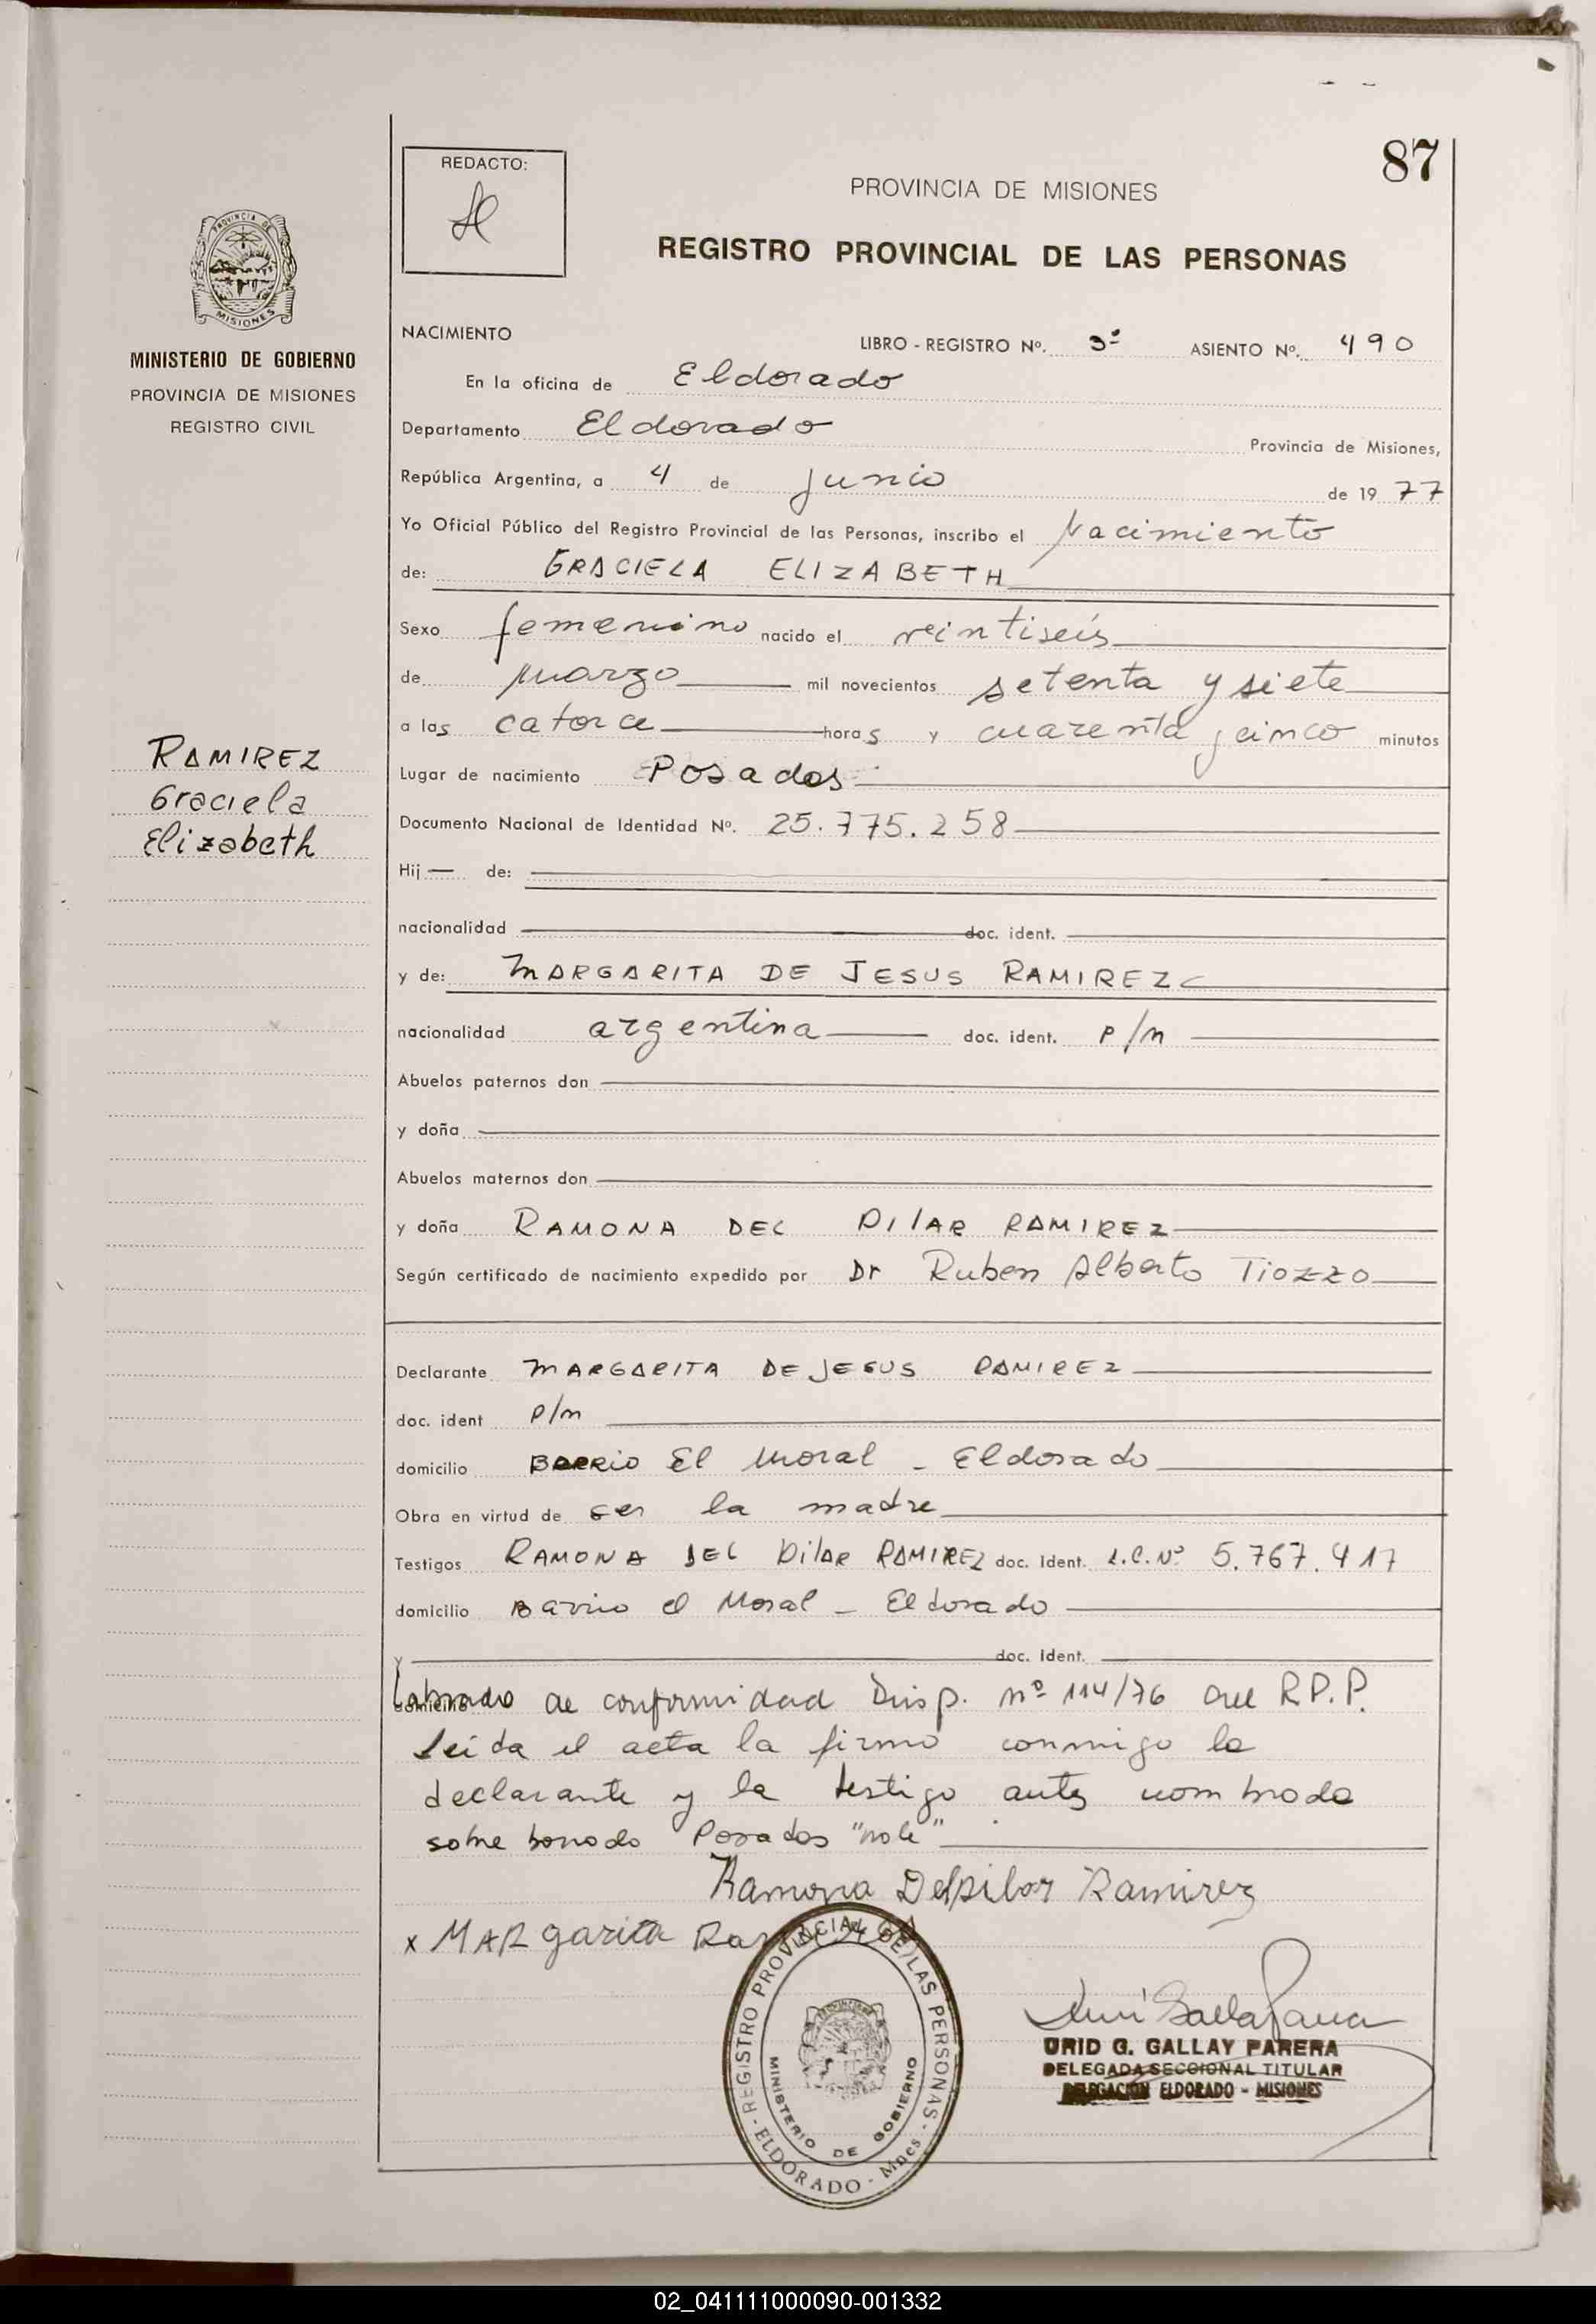 87
REDACTO:
PROVINCIA DE MISIONES
REGISTRO PROVINCIAL DE LAS PERSONAS
PROVINCIA DE
MISIONES
MINISTERIO DE GOBIERNO
PROVINCIA DE MISIONES
REGISTRO CIVIL
NACIMIENTO LIBRO - REGISTRO Nº. 3º ASIENTO Nº. 490
En la oficina de Eldorado
Departamento Eldorado Provincia de Misiones,
República Argentina, a 4 de junio de 1977
Yo Oficial Público del Registro Provincial de las Personas, inscribo el Nacimiento
de: GRACIELA ELIZABETH
Sexo femenino nacido el veintiseis
de marzo mil novecientos setenta y siete
a las catorce horas y cuarenta y cinco minutos
RAMIREZ
Graciela
Elizabeth
Lugar de nacimiento Posadas
Documento Nacional de Identidad Nº. 25.775.258
Hij — de:
nacionalidad doc. ident.
y de: MARGARITA DE JESUS RAMIREZ
nacionalidad argentina doc. ident. P/n
Abuelos paternos don
y doña
Abuelos maternos don
y doña RAMONA DEL PILAR RAMIREZ
Según certificado de nacimiento expedido por Dr Ruben Alberto Tiozzo
Declarante MARGARITA DE JESUS RAMIREZ
doc. ident P/n
domicilio BARRIO El Moral - Eldorado
Obra en virtud de ser la madre
Testigos RAMONA DEL Pilar RAMIREZ doc. Ident. L.C.Nº 5.767.417
domicilio Barrio el Moral - Eldorado
y doc. Ident.
domicilio Labrado de conformidad Disp. nº 114/76 del R.P.P.
Leida el acta la firmo conmigo la
declarante y la testigo antes nombrada
sobre borrado Posadas "vale"
Ramona Delpilar Ramirez
x MARgarita
REGISTRO PROVINCIAL DE LAS PERSONAS - ELDORADO - Mnes -
MINISTERIO DE GOBIERNO
URID G. GALLAY PARERA
DELEGADA SECCIONAL TITULAR
DELEGACION ELDORADO - MISIONES
02_041111000090-001332